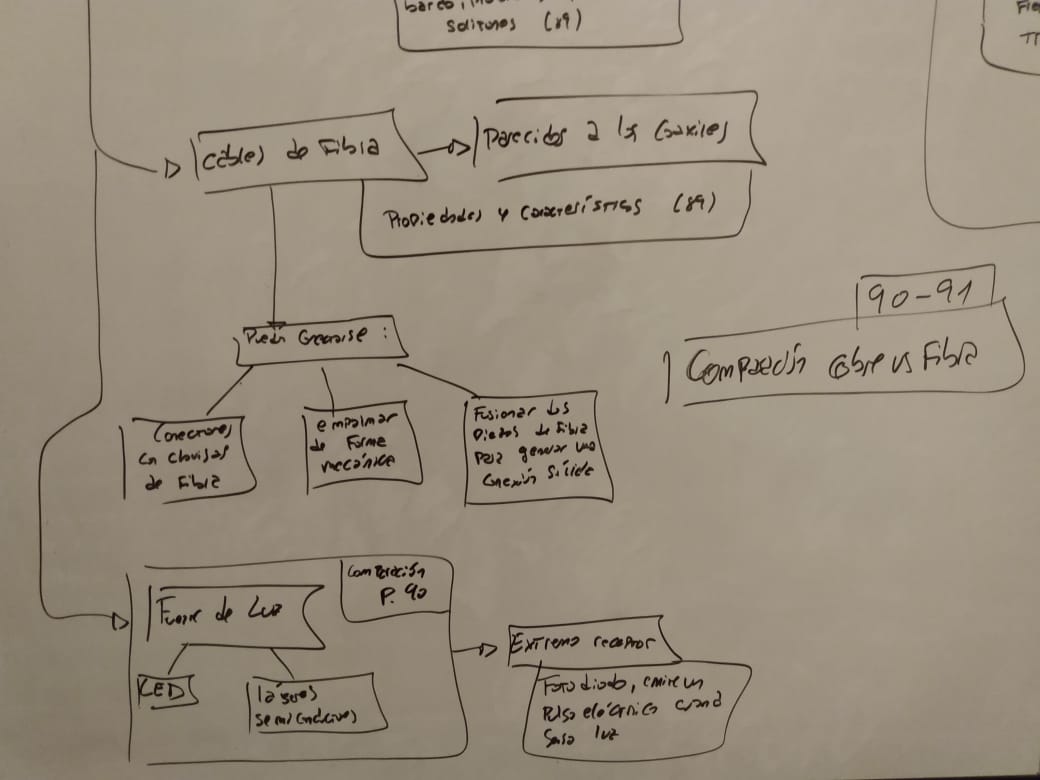 barco,
solitones (89)
Fi
TT
cables de Fibra
Parecidos a los Coaxiles
Propiedades y Características (89)
90-91
Comparación cobre vs Fibra
Pueden Conectarse :
Conectores
en clavijas
de Fibra
empalmar
de Forma
mecánica
Fusionar dos
Piezas de Fibra
para generar una
Conexión Sólida
Comparación
P. 90
Fuente de Luz
LED
láseres
semiconductores
Extremo receptor
Fotodiodo, emite un
Pulso eléctrico cuando
luz